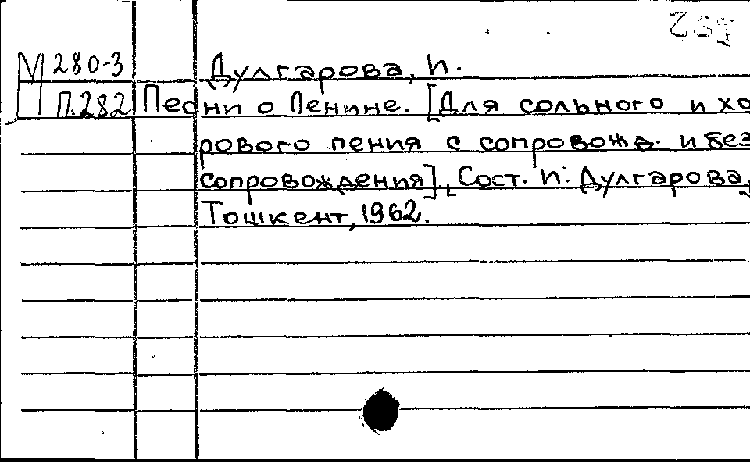 М 280-3 Дулгарова, И.
П.282 Песни о Ленине. [Для сольного и хо
рового пения с сопровожд. и без
сопровождения]. [Сост. И. Дулгарова,
Тошкент, 1962.